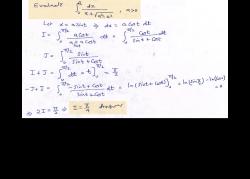 Evaluate ∫₀ᵃ dx / (x + √(a²-x²)), a>0
Let x = a sint ⇒ dx = a cost dt
I = ∫₀^(π/2) a cost / (a sint + a cost) dt = ∫₀^(π/2) cost / (sint + cost) dt
J = ∫₀^(π/2) sint / (sint + cost)
I + J = ∫₀^(π/2) dt = t]₀^(π/2) = π/2
-J + I = ∫₀^(π/2) (-sint + cost) / (sint + cost) dt = ln(sint + cost)]₀^(π/2) = ln(sin π/2) - ln(cos 0) = 0
⇒ 2I = π/2 ⇒ I = π/4 Answer